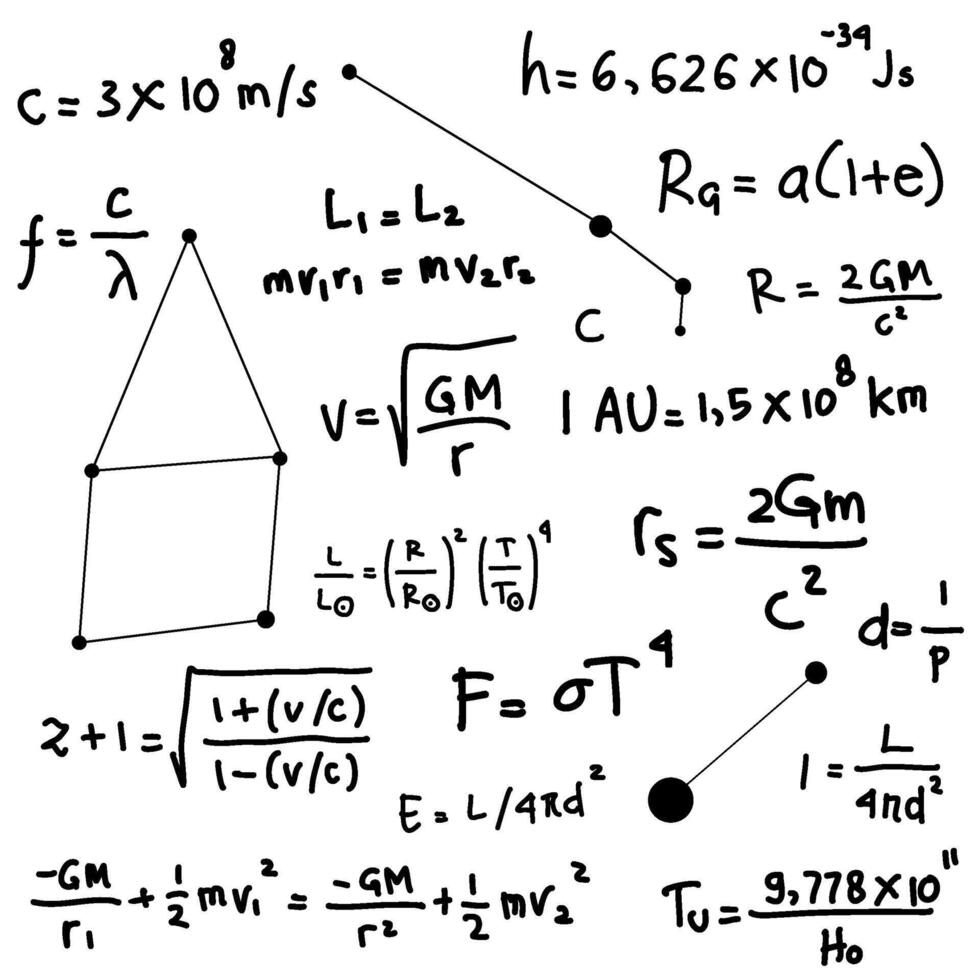 c = 3×10⁸ m/s
h = 6,626×10⁻³⁴ Js
Rq = a(1+e)
f = c/λ
L₁ = L₂
mv₁r₁ = mv₂r₂
R = 2GM/c²
C
V = √(GM/r)
1 AU = 1,5×10⁸ km
rₛ = 2Gm/c²
L/L⊙ = (R/R⊙)² (T/T⊙)⁴
d = 1/p
F = σT⁴
z+1 = √((1+(v/c))/(1-(v/c)))
l = L/4πd²
E = L/4πd²
-GM/r₁ + 1/2 mv₁² = -GM/r² + 1/2 mv₂²
Tᵤ = 9,778×10¹¹/H₀